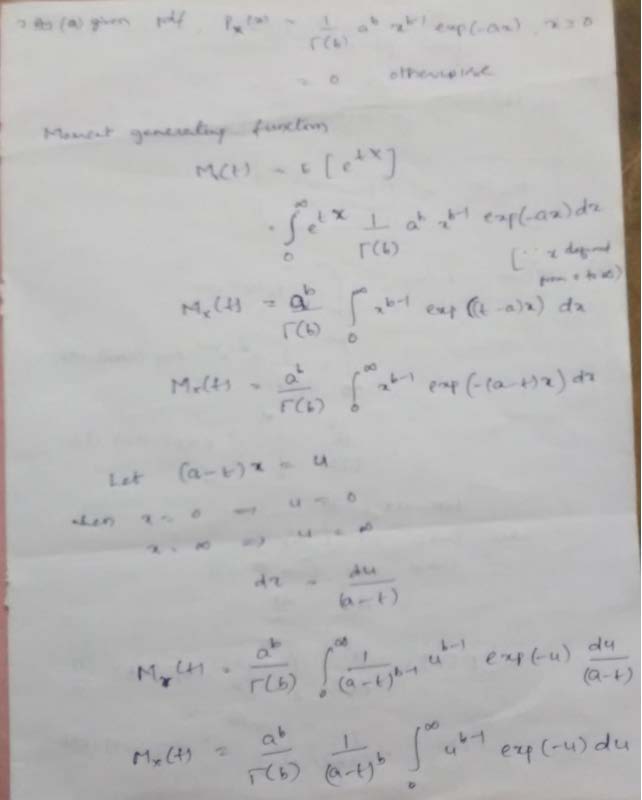 (a) given pdf P_x(x) = 1/Γ(b) a^b x^(b-1) exp(-ax), x ≥ 0
= 0 otherwise
Moment generating function
M_x(t) = E[e^(tX)]
= ∫_0^∞ e^(tx) 1/Γ(b) a^b x^(b-1) exp(-ax) dx
[∵ x defined
from 0 to ∞)
M_x(t) = a^b/Γ(b) ∫_0^∞ x^(b-1) exp((t-a)x) dx
M_x(t) = a^b/Γ(b) ∫_0^∞ x^(b-1) exp(-(a-t)x) dx
Let (a-t)x = u
when x = 0 ⇒ u = 0
x = ∞ ⇒ u = ∞
dx = du/(a-t)
M_x(t) = a^b/Γ(b) ∫_0^∞ 1/(a-t)^(b-1) u^(b-1) exp(-u) du/(a-t)
M_x(t) = a^b/Γ(b) 1/(a-t)^b ∫_0^∞ u^(b-1) exp(-u) du